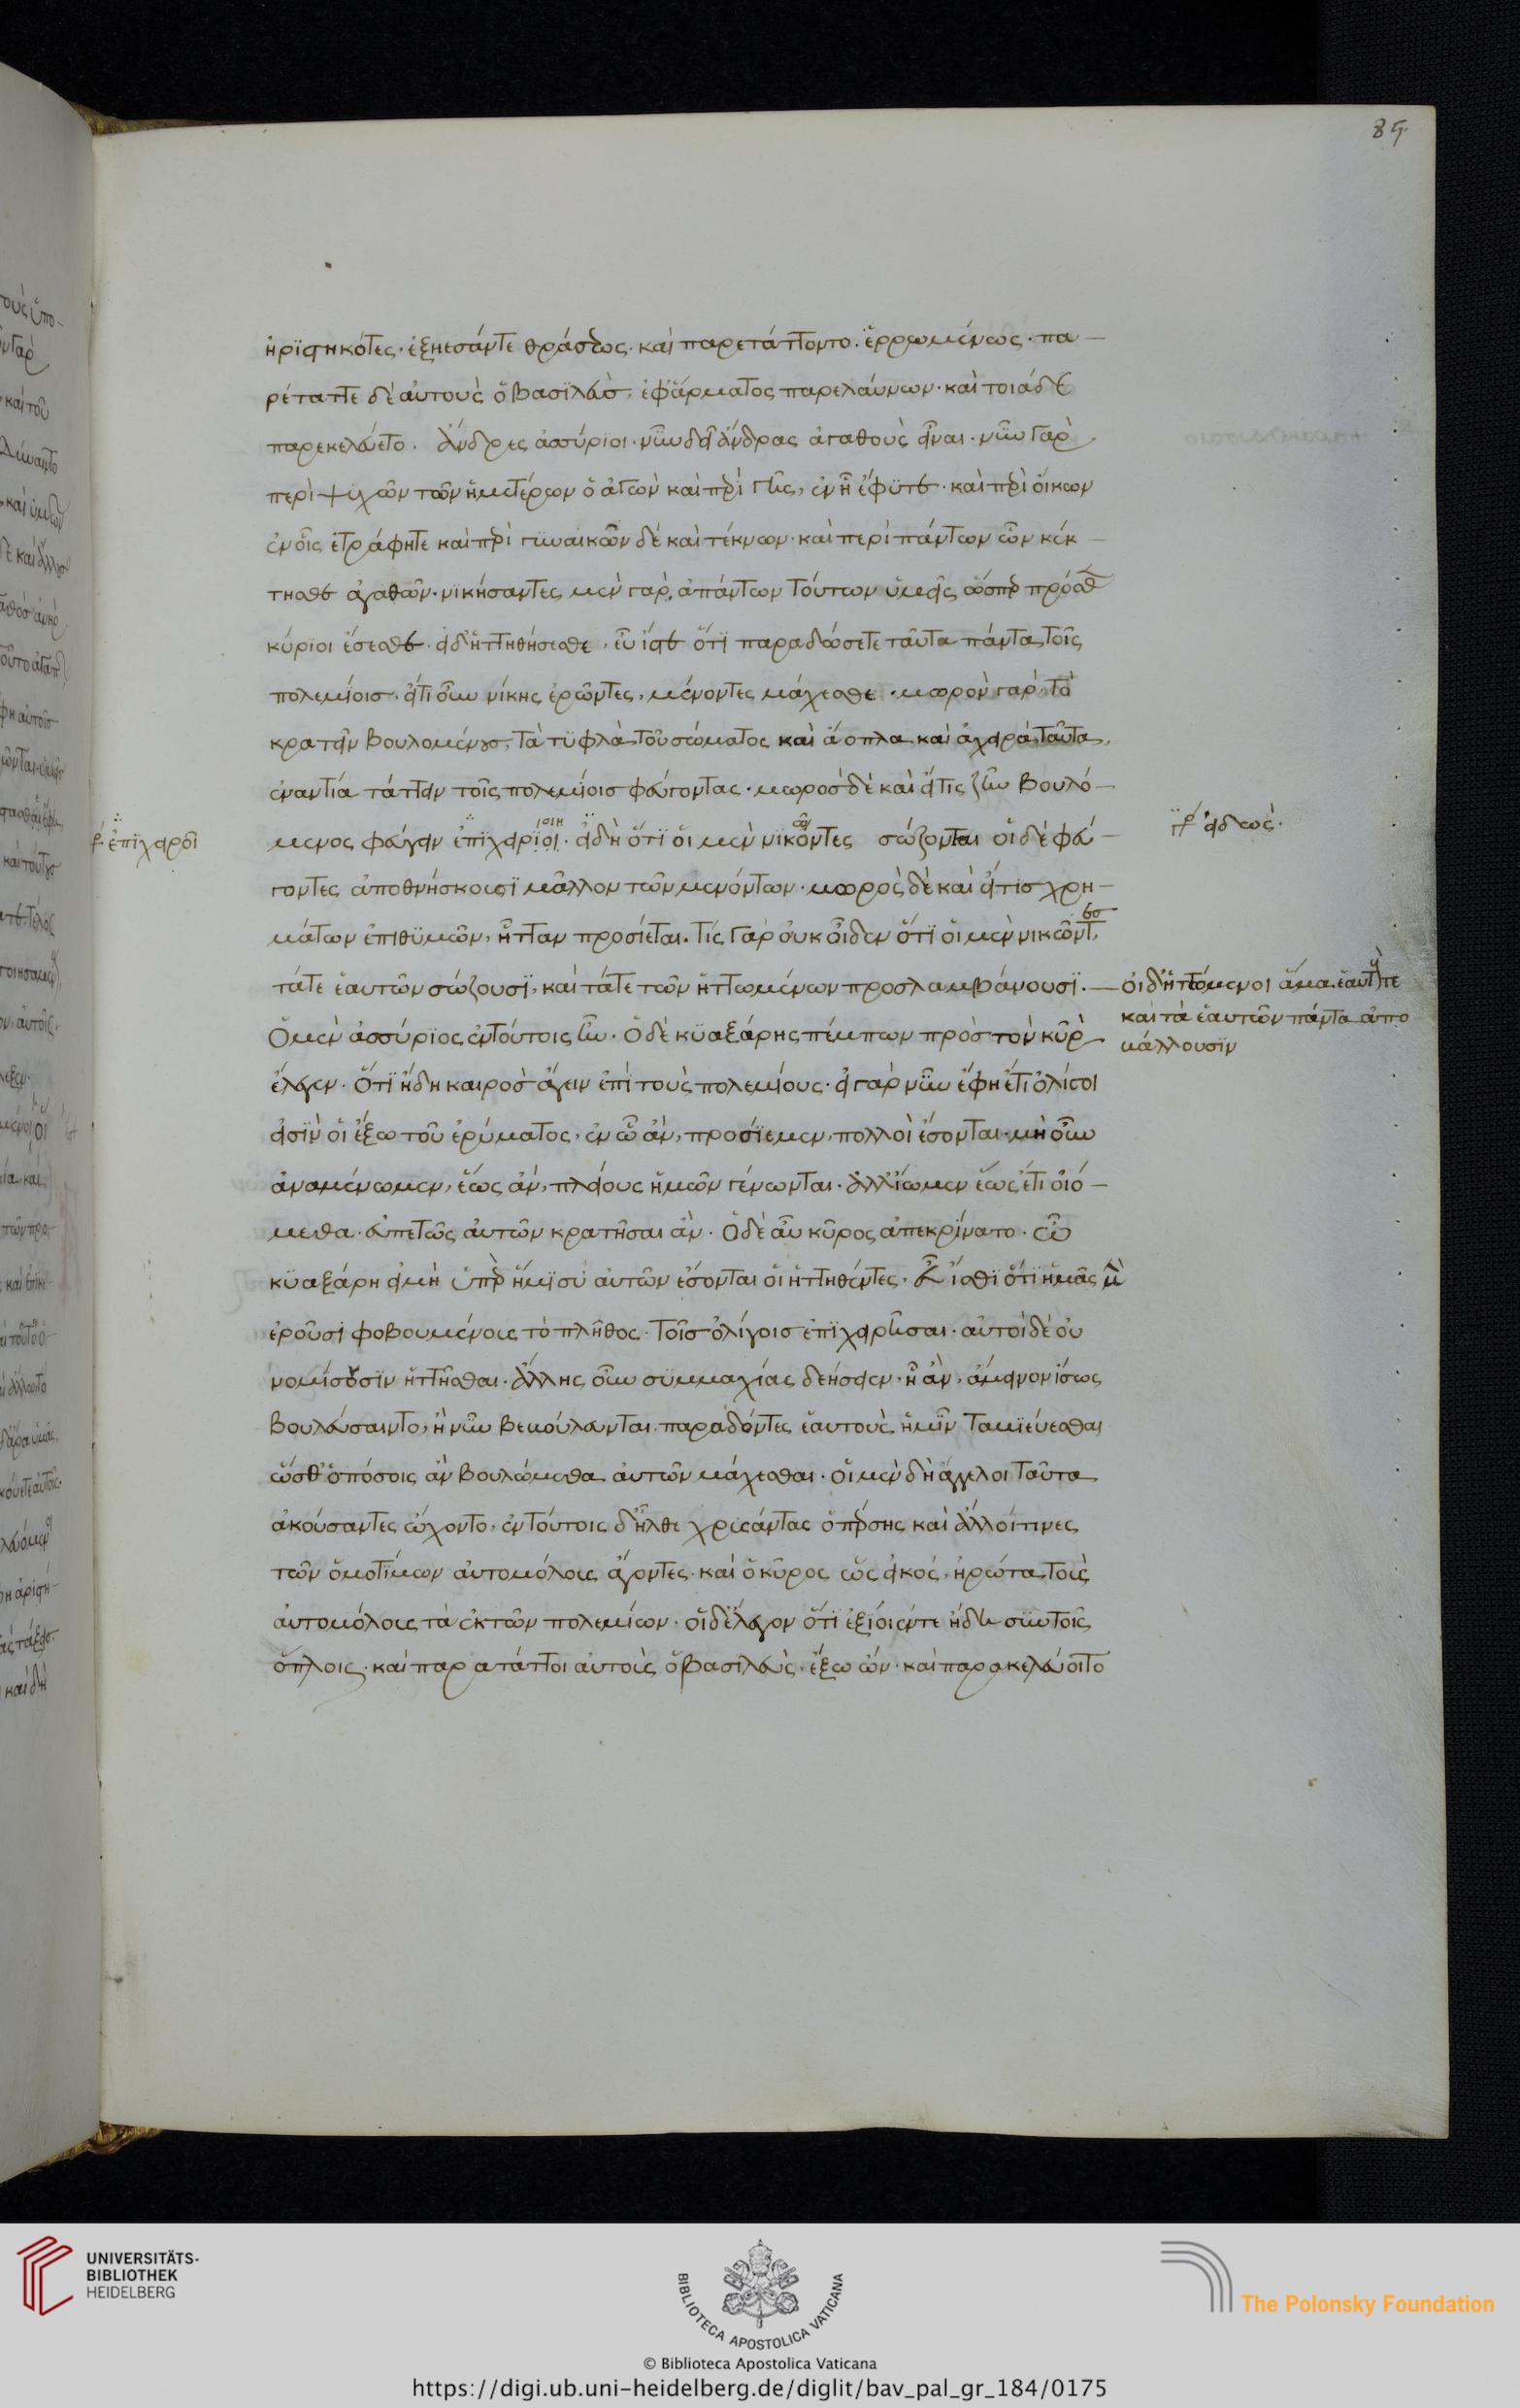 85
ἠρϊστηκότες· ἐξήεσάντε θράσεως· καὶ παρετάττοντο· ἐρρωμένως· πα
ρέταττε δὲ αὐτοὺς ὁ βασϊλεὺσ· ἐφ᾽ἅρματος παρελαύνων· καὶ τοιάδε
παρεκελεύετο. ἄνδρες ἀσσύριοι· νῦν δεῖ ἄνδρας ἀγαθοὺς εἶναι· νῦν γὰρ
περὶ ψυχῶν τῶν ἡμετέρων ὁ ἀγὼν καὶ περὶ γῆς, ἐν ἧ ἔφϋτε· καὶ περὶ οἴκων
ἐν οἷς ἐτράφητε καὶ περὶ γυναικῶν δὲ καὶ τέκνων· καὶ περὶ πάντων ὧν κέκ
τησθε ἀγαθῶν· νϊκήσαντες μὲν γὰρ, ἁπάντων τούτων ὑμεῖς ὥσπερ πρόσθεν
κύριοι ἔσεσθε· εἰ δ᾽ἡττηθήσεσθε, εὖ ἴστε ὅτϊ παραδώσετε ταῦτα πάντα τοῖς
πολεμίοισ· ἅτε οὖν νίκης ἐρῶντες, μένοντες μάχεσθε· μωρὸν γὰρ τὸ
κρατεῖν βουλομένουσ, τὰ τϋφλὰ τοῦ σώματος καὶ ἄοπλα καὶ ἄχειρα, ταῦτα
ἐναντία τάττειν τοῖς πολεμίοισ φεύγοντας· μωροσ δὲ καὶ εἴτις ζῆν βουλό
μενος φεύγειν ἐπϊχειρϊοι· εἰδὴ ὅτϊ οἱ μὲν νϊκόντες σώζονται οἱ δὲ φεύ
γοντες ἀποθνήσκουσϊ μᾶλλον τῶν μενόντων· μωρὸς δὲ καὶ εἴτισ χρη
μάτων ἐπιθϋμῶν, ἧτταν προσίεται. τίς γὰρ οὐκ οἶδεν ὅτϊ οἱ μὲν νικῶντες
τάτε ἑαυτῶν σώζουσϊ, καὶ τάτε τῶν ἡττωμένων προσλαμβάνουσϊ.
Ὁ μὲν ἀσσύριος ἐν τούτοις ἦν. Ὁ δὲ κϋαξάρης πέμπων πρὸσ τὸν κῦρον
ἔλεγεν. ὅτϊ ἤδη καιροσ ἄγειν ἐπὶ τοὺς πολεμίους· εἰ γὰρ νῦν ἔφη ἔτι ὀλίγοι
εἰσϊν οἱ ἔξω τοῦ ἐρύματος, ἐν ὧ ἂν, προσίεμεν, πολλοὶ ἔσονται· μὴ οὖν
ἀναμένωμεν, ἕως ἂν, πλείους ἡμῶν γένωνται. ἀλλ᾽ἴωμεν ἕως ἔτι οἰό
μεθα εὐπετῶς αὐτῶν κρατῆσαι ἂν. Ὁ δὲ αὖ κῦρος ἀπεκρίνατο. ὦ
κϋαξάρη εἰ μὴ ὑπὲρ ἥμϊσυ αὐτῶν ἔσονται οἱ ἡττηθέντες, εὖ ἴσθϊ ὅτϊ ἡμᾶς μὲν
ἐροῦσϊ φοβουμένους τὸ πλῆθος. τοῖσ ὀλίγοισ ἐπϊχειρῆσαι· αὐτοὶ δὲ οὐ
νομίσουσϊν ἡττῆσθαι. ἄλλης οὖν συμμαχίας δεήσειεν· ἧ ἂν, ἄμεινον ἴσως
βουλεύσαιντο, ἢ νῦν βεβούλευνται παραδόντες ἑαυτοὺς ἡμῖν ταμϊεύεσθαι
ὥσθ᾽ὁπόσοις ἂν βουλώμεθα αὐτῶν μάχεσθαι. οἱ μὲν δὴ ἄγγελοι ταῦτα
ἀκούσαντες ὤχοντο, ἐν τούτοις δ᾽ἦλθε χρϊσάντας ὁ πέρσης καὶ ἄλλοί τινες
τῶν ὁμοτίμων αὐτομόλους ἄγοντες· καὶ ὁ κῦρος ὡς εἰκός, ἠρώτα τοὺς
αὐτομόλους τὰ ἐκ τῶν πολεμίων. οἱ δ᾽ἔλεγον ὅτϊ ἐξίοιέντε ἤδη σὺν τοῖς
ὅπλοις, καὶ παρατάττοι αὐτοὺς ὁ βασϊλεὺς, ἔξω ὢν· καὶ παρακελεύοιτο
ἐπϊχειροῖ
εἰδεὼς.
οἱ δ᾽ἡττόμενοι ἅμα ἑαυτούς τε
καὶ τὰ ἑαυτῶν πάντα ἀπο
βάλλουσϊν
UNIVERSITÄTS-
BIBLIOTHEK
HEIDELBERG
BIBLIOTECA APOSTOLICA VATICANA
The Polonsky Foundation
© Biblioteca Apostolica Vaticana
https://digi.ub.uni-heidelberg.de/diglit/bav_pal_gr_184/0175